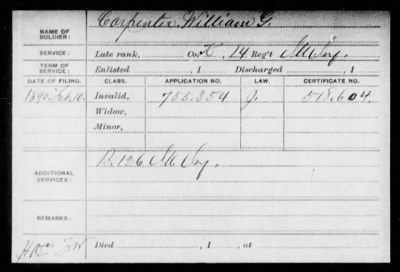 NAME OF SOLDIER: Carpenter, William G.
SERVICE: Late rank, Co. K, 14 Reg't Ill Inf.
TERM OF SERVICE: Enlisted , 1 Discharged , 1
DATE OF FILING. CLASS. APPLICATION NO. LAW. CERTIFICATE NO.
1890 Feb. 10. Invalid, 755.354 J. 518.604.
Widow,
Minor,
ADDITIONAL SERVICES: D. 126 Ill Inf.
REMARKS:
Died , 1 , at